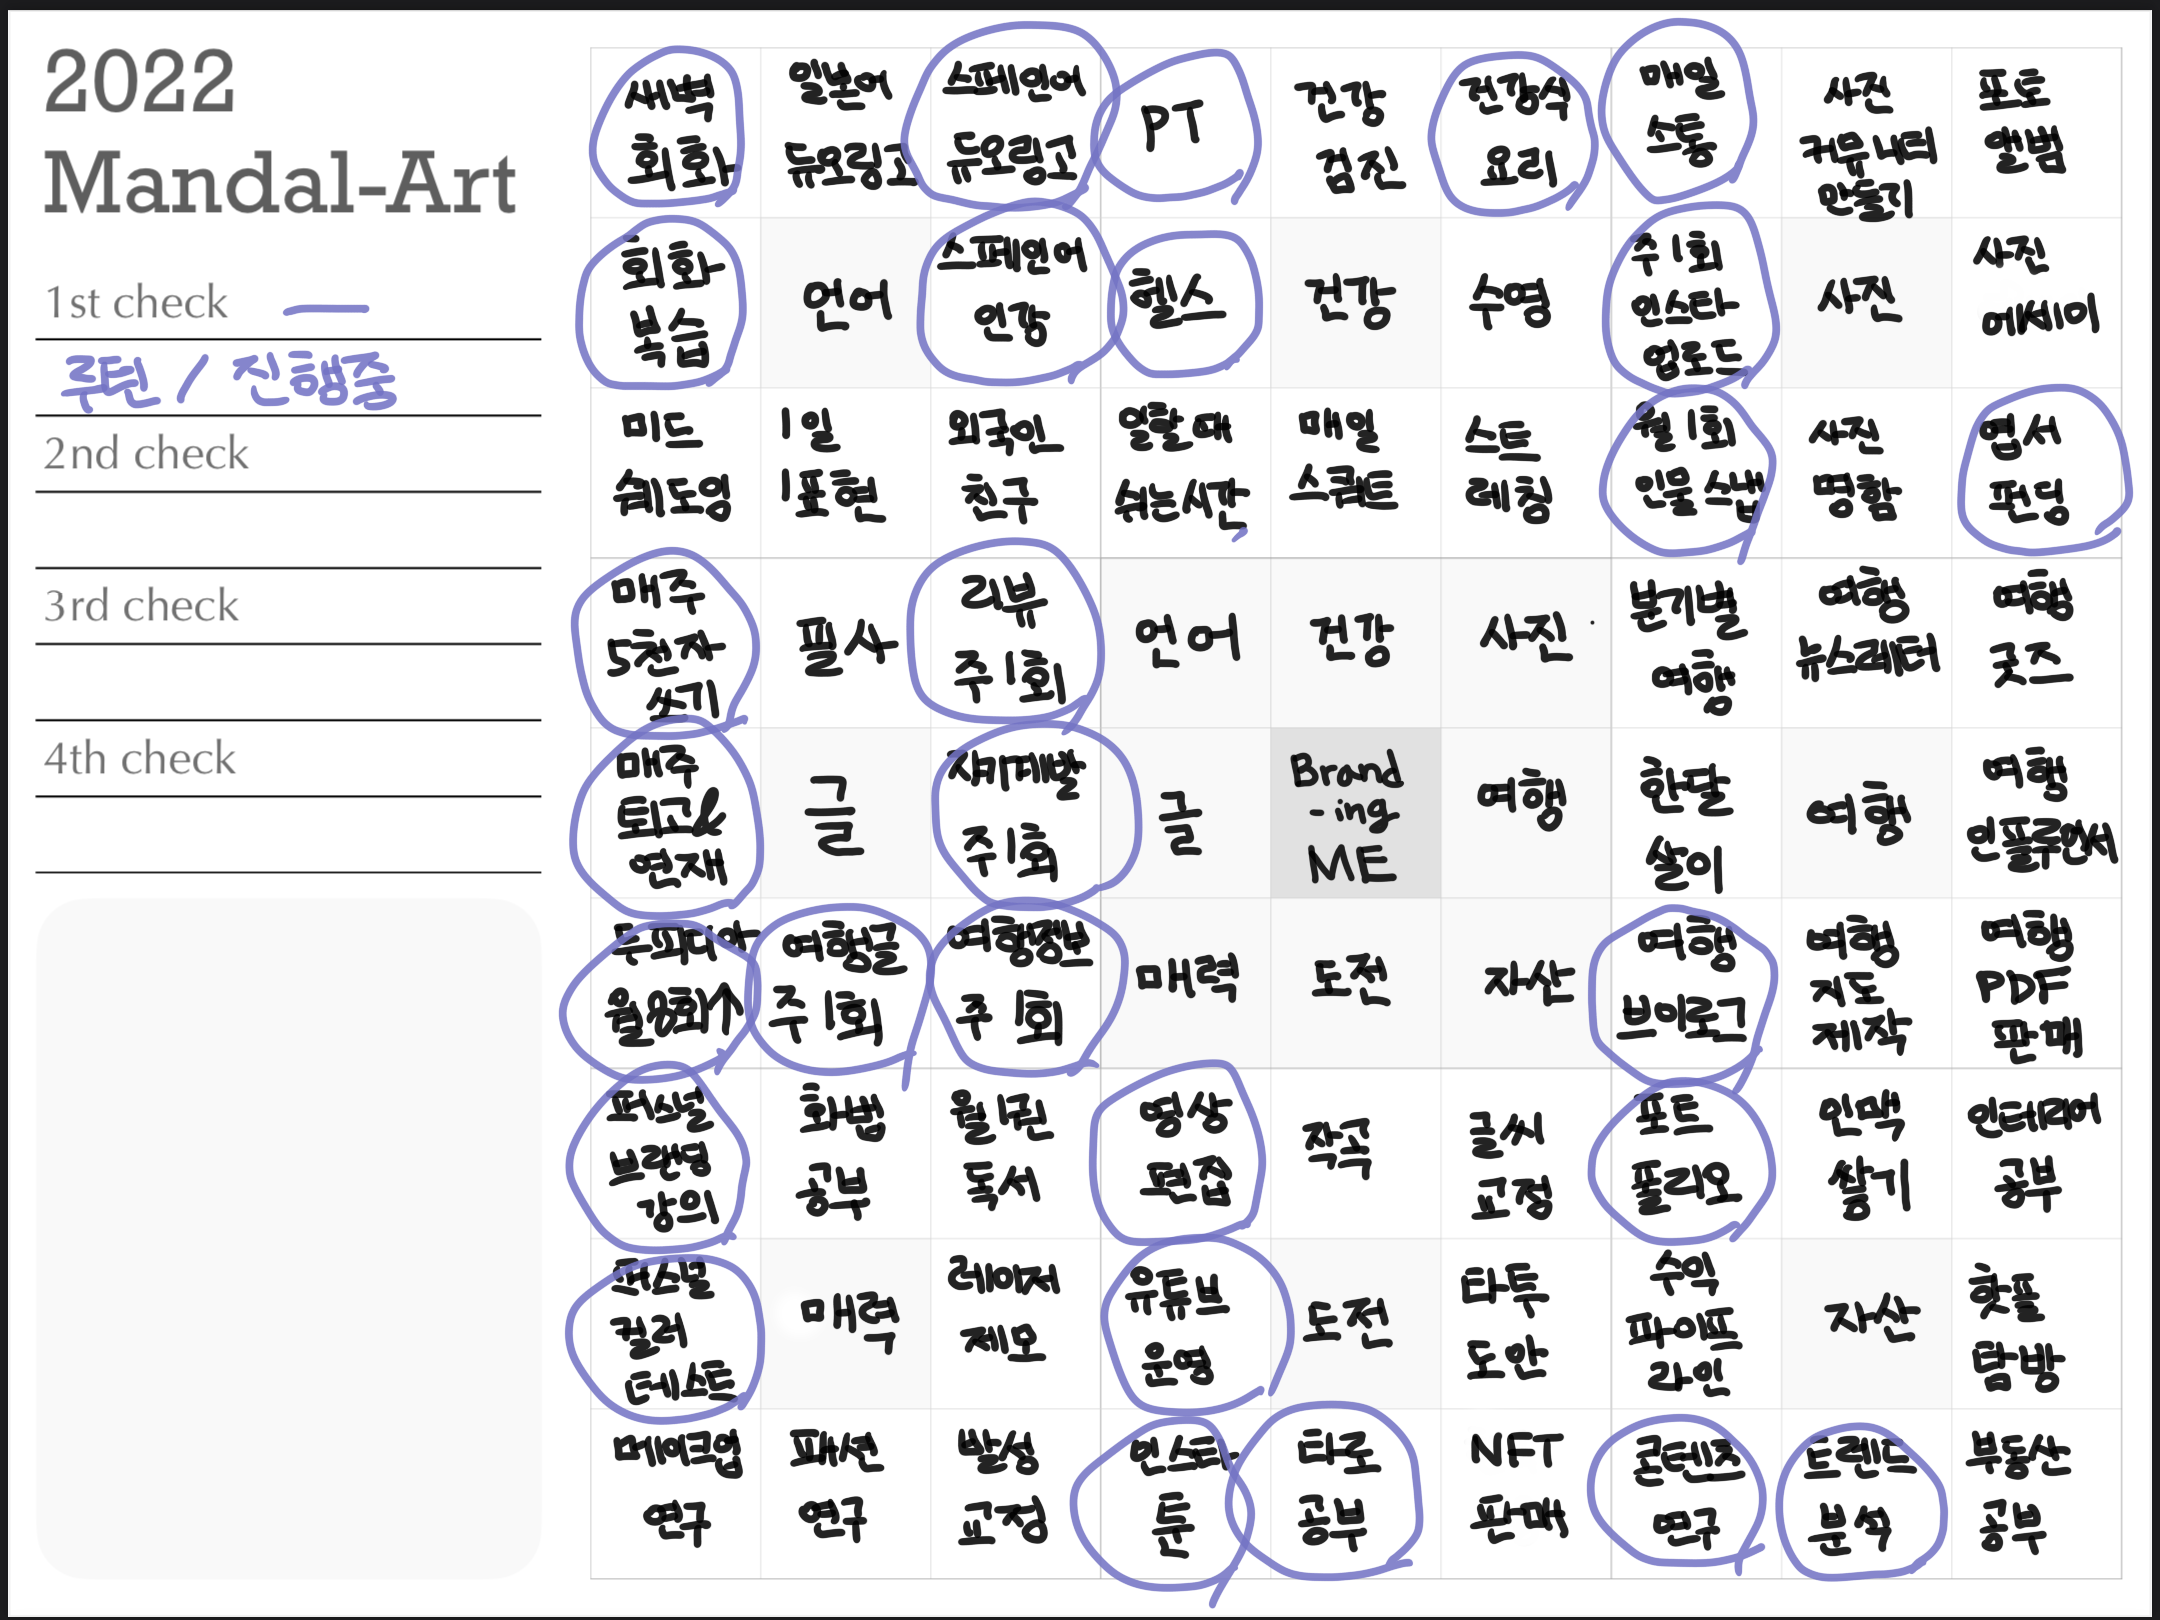 2022
Mandal-Art
1st check
루틴 / 진행중
2nd check
3rd check
4th check
새벽
회화
일본어
듀오링고
스페인어
듀오링고
PT
건강
검진
건강식
요리
매일
소통
사진
커뮤니티
만들기
포토
앨범
회화
복습
언어
스페인어
인강
헬스
건강
수영
주1회
인스타
업로드
사진
사진
에세이
미드
쉐도잉
1일
1표현
외국인
친구
일할때
쉬는시간
매일
스쿼트
스트
레칭
월1회
인물스냅
사진
명함
엽서
펀딩
매주
5천자
쓰기
필사
리뷰
주1회
언어
건강
사진
분기별
여행
여행
뉴스레터
여행
굿즈
매주
퇴고&
연재
글
자기계발
주1회
글
Brand
-ing
ME
여행
한달
살이
여행
여행
인플루언서
두피디아
월8회↑
여행글
주1회
여행정보
주1회
매력
도전
자산
여행
브이로그
여행
지도
제작
여행
PDF
판매
퍼스널
브랜딩
강의
화법
공부
월1권
독서
영상
편집
작곡
글씨
교정
포트
폴리오
인맥
쌓기
인테리어
공부
퍼스널
컬러
테스트
매력
레이저
제모
유튜브
운영
도전
타투
도안
수익
파이프
라인
자산
핫플
탐방
메이크업
연구
패션
연구
발성
교정
인스타
툰
타로
공부
NFT
판매
콘텐츠
연구
트렌드
분석
부동산
공부